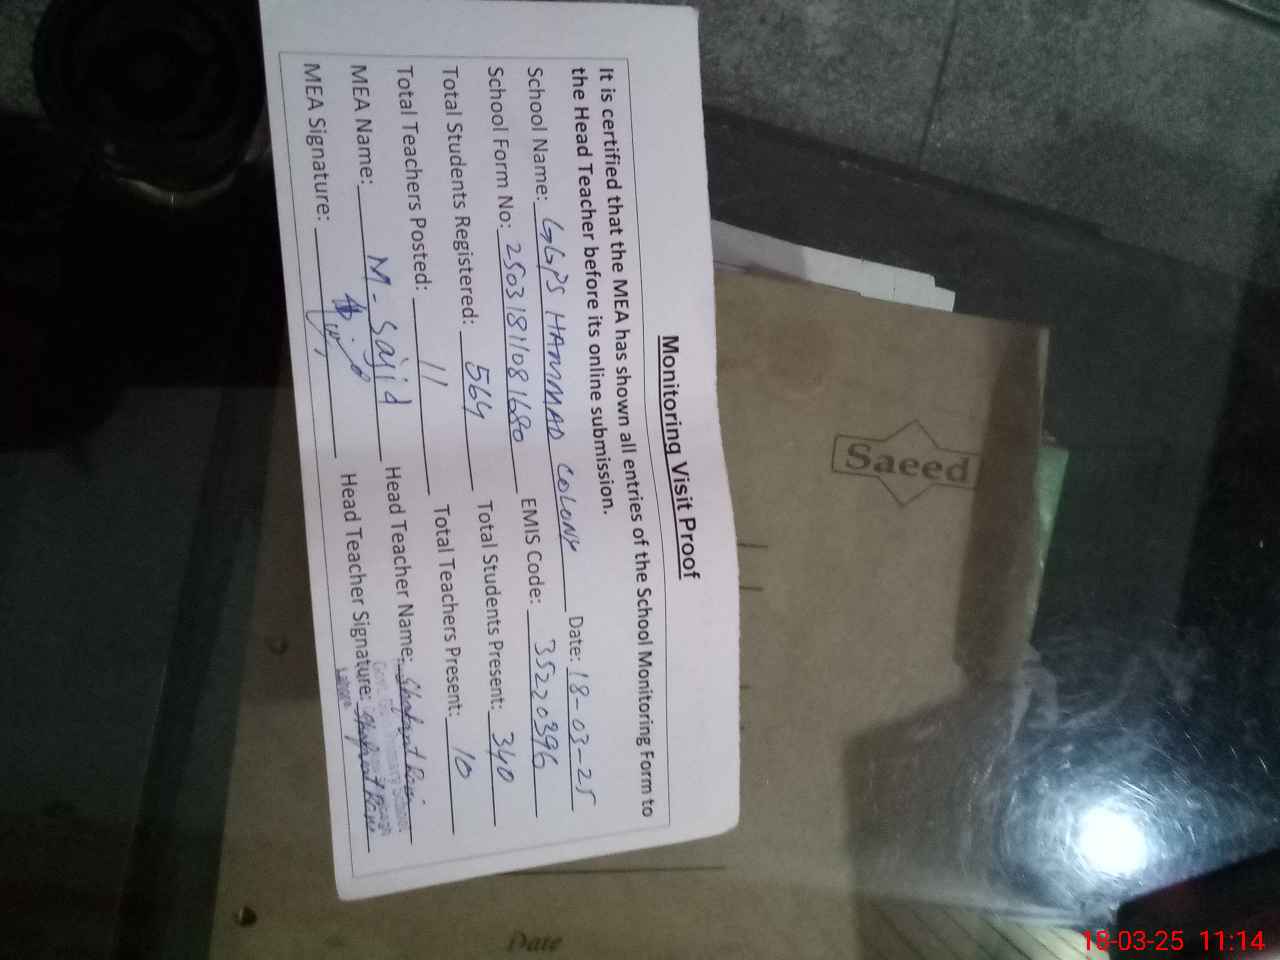 Monitoring Visit Proof
It is certified that the MEA has shown all entries of the School Monitoring Form to
the Head Teacher before its online submission.
School Name: GGPS HAMMAD COLONY Date: 18-03-25
School Form No: 25031811081680 EMIS Code: 35220396
Total Students Registered: 564 Total Students Present: 340
Total Teachers Posted: 11 Total Teachers Present: 10
MEA Name: M-Sajid Head Teacher Name:
MEA Signature: Head Teacher Signature:
Lahore
Saeed
Date
18-03-25 11:14